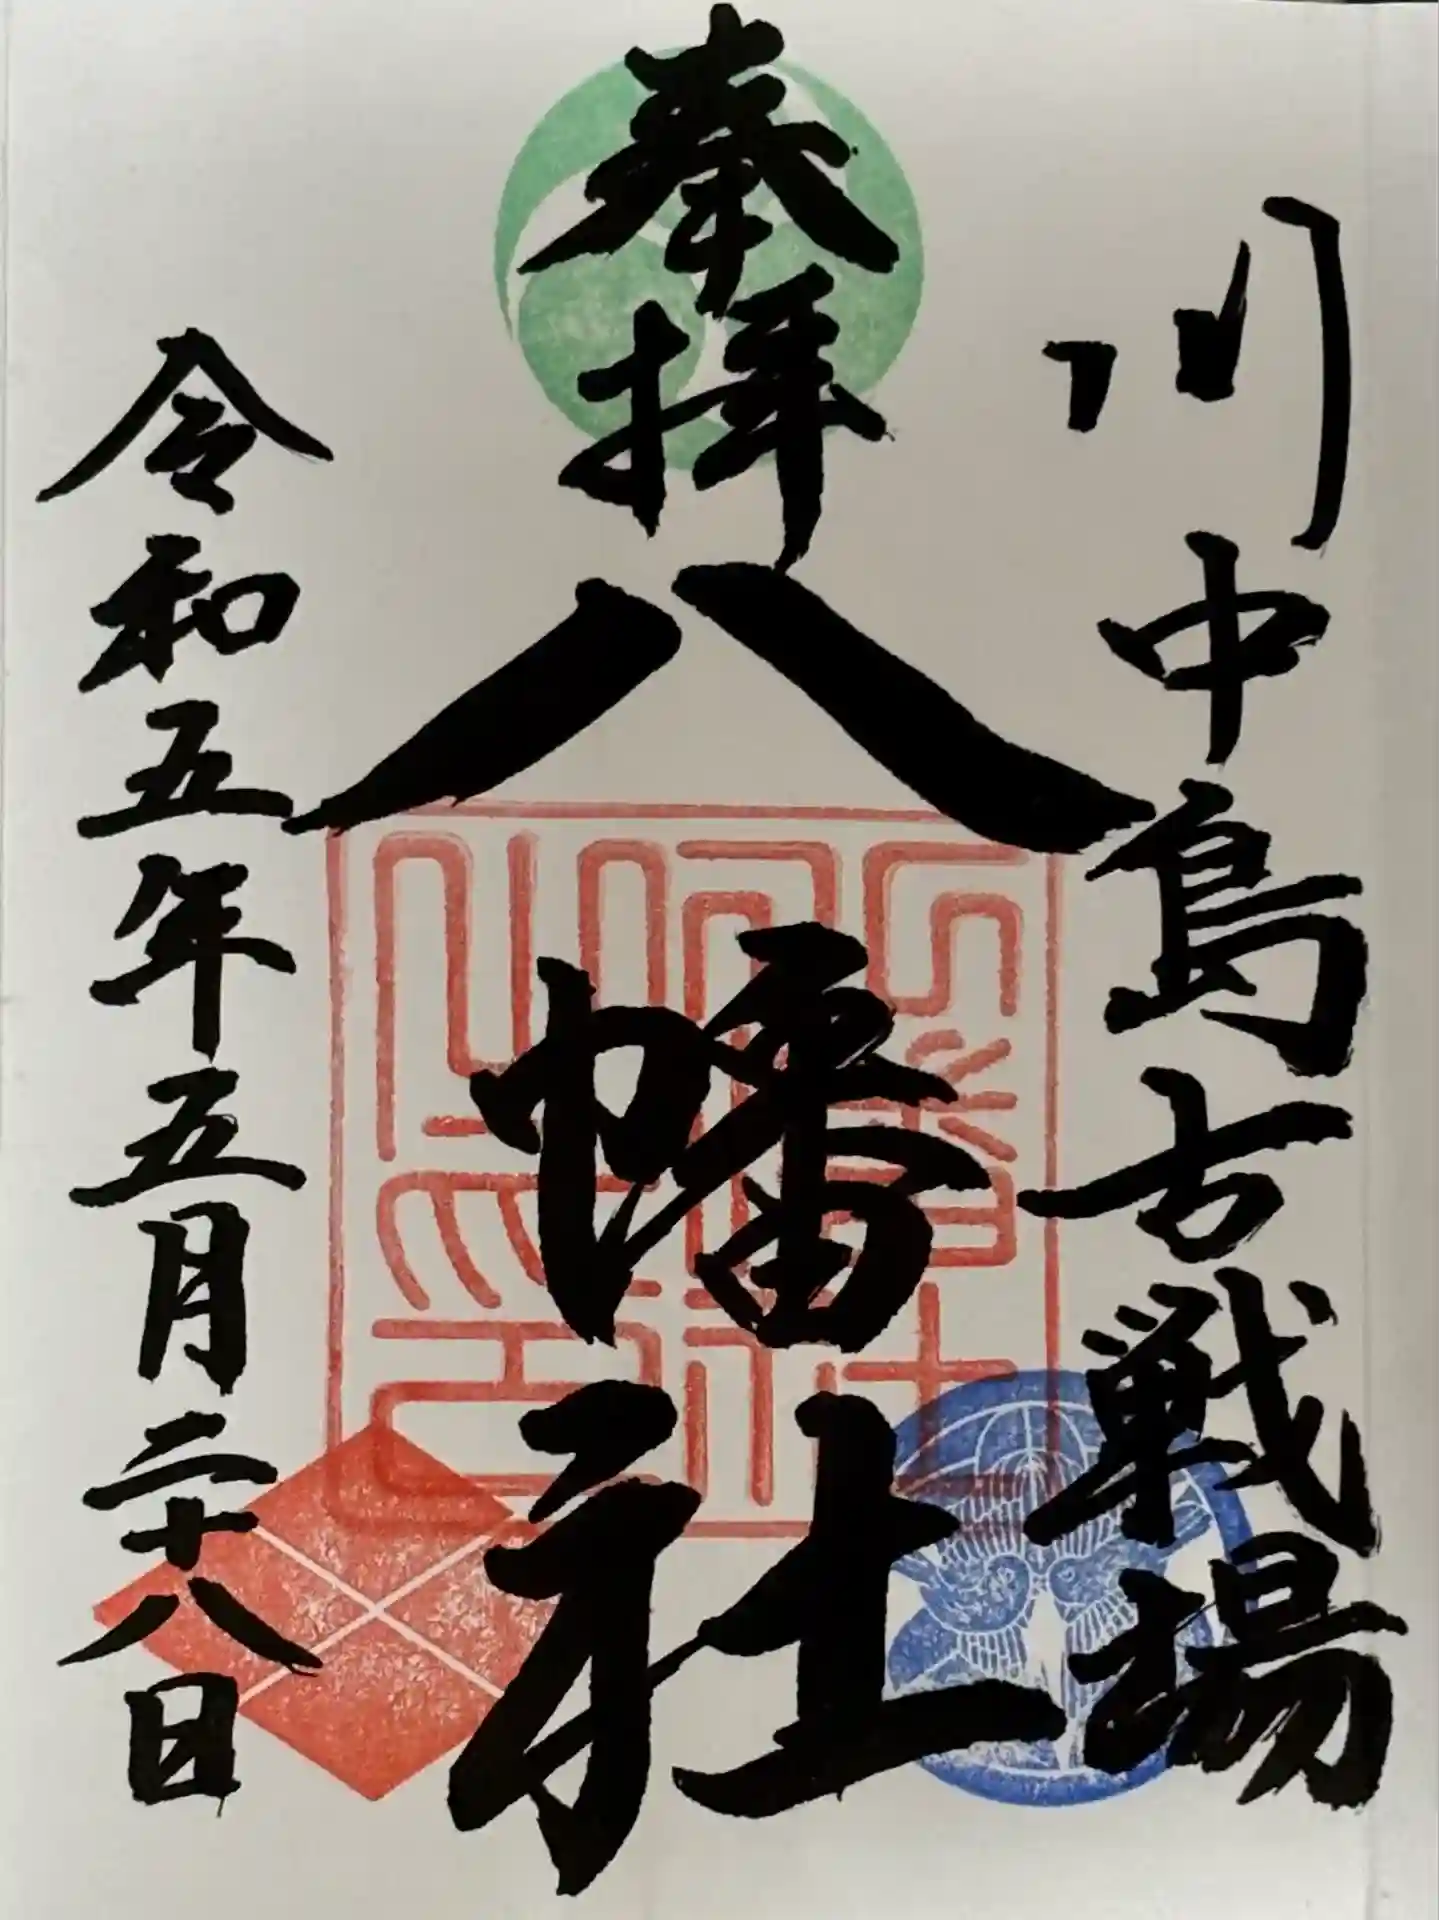 川中島古戦場
奉拝
八幡社
令和五年五月二十八日